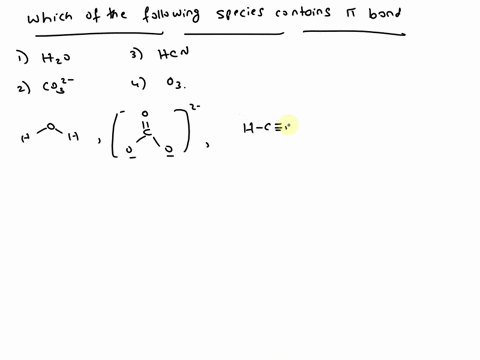 which of the following species contains π bond
1) H2O 3) HCN
2) CO3^2- 4) O3.
O
H H , [ O C O O ]^2- , H-C≡N